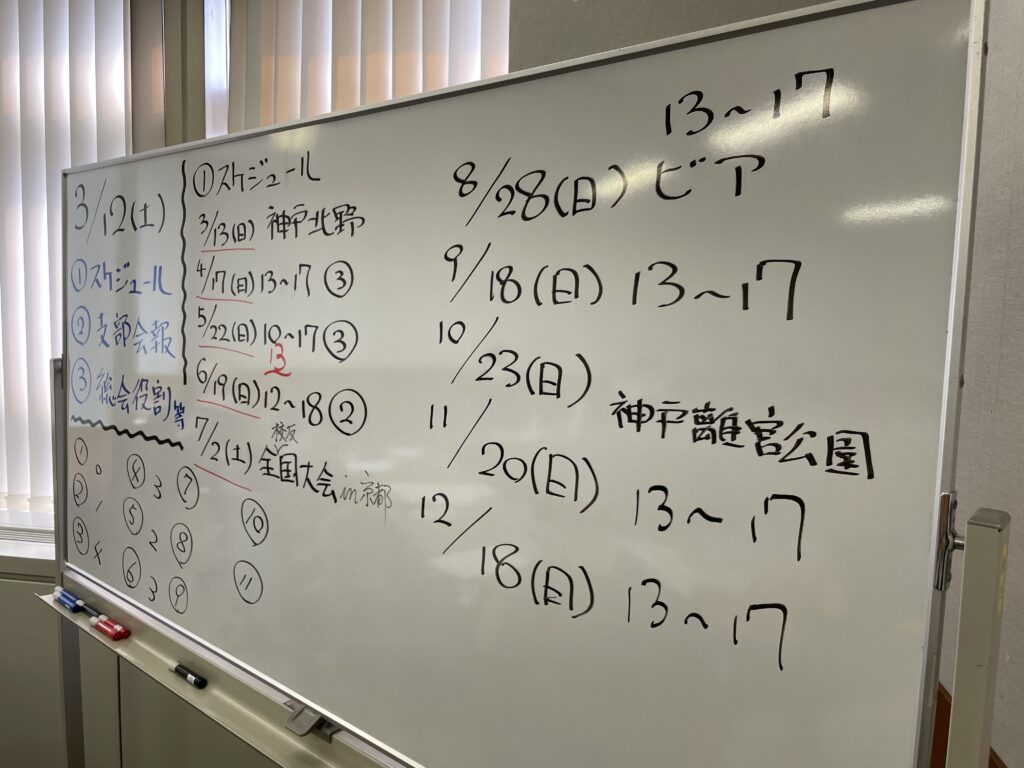 3/12(土)
①スケジュール
②支部会報
③総会役割等
① 0
② 1
③ 4
④ 3
⑤ 2
⑥ 3
⑦
⑧
⑨
⑩
⑪
①スケジュール
3/13(日) 神戸北野
4/17(日) 13~17 ③
5/22(日) 10~17 ③
13
6/19(日) 12~18 ②
7/2(土) 全国大会 in京都
13~17
8/28(日) ビア
9/18(日) 13~17
10/23(日)
神戸離宮公園
11/20(日) 13~17
12/18(日) 13~17